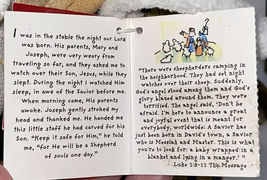 I was in the stable the night our Lord
was born. His parents, Mary and
Joseph, were very weary from
traveling so far, and they asked me to
watch over their Son, Jesus, while they
slept. During the night I watched Him
sleep, in awe of the Savior before me.
When morning came, His parents
awoke. Joseph gently stroked my
head and thanked me. He handed me
this little staff he had carved for his
Son. "Keep it safe for Him," he told
me, "for He will be a Shepherd
of souls one day."
"There were sheepherders camping in
the neighborhood. They had set night
watches over their sheep. Suddenly,
God's angel stood among them and God's
glory blazed around them. They were
terrified. The angel said, 'Don't be
afraid. I'm here to announce a great
and joyful event that is meant for
everybody, worldwide: A Savior has
just been born in David's town, a Savior
who is Messiah and Master. This is what
you're to look for: a baby wrapped in a
blanket and lying in a manger.'"
Luke 2:8-11 The Message